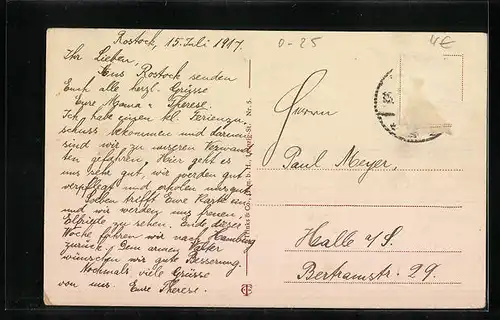 Rostock, 15. Juli 1917.
Ihr Lieben,
Aus Rostock senden
Euch alle herzl. Grüsse
Eure Mama u. Therese.
Ich habe einen kl. Feriengu-
schuss bekommen und
sind wir zu unseren Verwand-
ten gefahren. Hier geht es
uns sehr gut, wir werden gut
verpflegt und erholen uns gut.
Soeben trifft Eure Karte ein
und wir werden uns freuen,
Elfriede zu sehen. Ende dieser
Woche fahren wir nach Hamburg
zurück. Dem armen Vater
wünschen wir gute Besserung.
Nochmals viele Grüsse
von uns. Eure Therese.
& Co., G. m. b. H., Nr. 5.
0-25
4€
Herrn
Paul Meyer,
Halle a/S.
Bertramstr. 29.